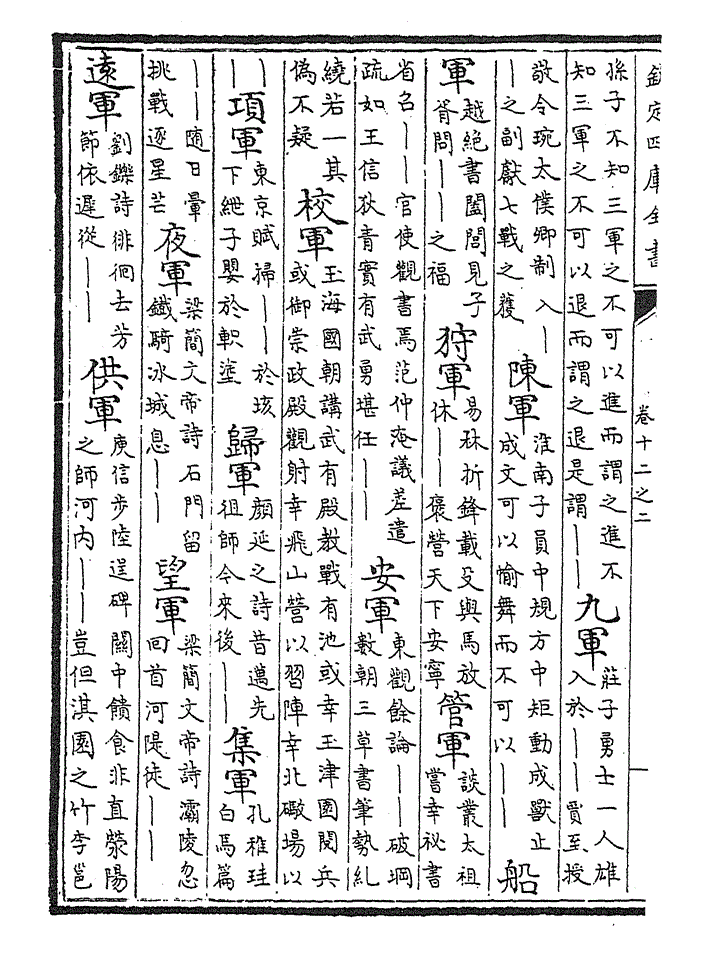 欽定四庫全書 卷十二之二
孫子不知三軍之不可以進而謂之進不知三軍之不可以退而謂之退是謂丨丨 九軍 莊子勇士一人雄入於丨丨賈至授
敬令琬太僕卿制入丨丨之副獻七戰之獲 陳軍 淮南子員中規方中矩動成獸止成文可以愉舞而不可以丨丨 船
軍 越絕書闔閭見子胥問丨丨之福 狩軍 易林折鋒載殳與馬放休丨丨褒營天下安寧 管軍 談叢太祖嘗幸秘書
省召丨丨官使觀書焉范仲淹議差遣疏如王信狄青實有武勇堪任丨丨 安軍 東觀餘論丨丨破堈數朝三草書筆勢糺
繞若一其偽不疑 校軍 玉海國朝講武有殿教戰有池或幸玉津園閱兵或御崇政殿觀射幸飛山營以習陣幸北礮場以
丨丨 項軍 東京賦掃丨丨於垓下紲子嬰於軹塗 歸軍 顏延之詩昔邁先徂師今來後丨丨 集軍 孔稚珪白馬篇
丨丨隨日暈挑戰逐星芒 夜軍 梁簡文帝詩石門留鐵騎冰城息丨丨 望軍 梁簡文帝詩灞陵忽回首河隄徒丨丨
遠軍 劉鑠詩徘徊去芳節依遲從丨丨 供軍 庾信步陸逞碑關中饋食非直滎陽之師河内丨丨豈但淇園之竹李邕